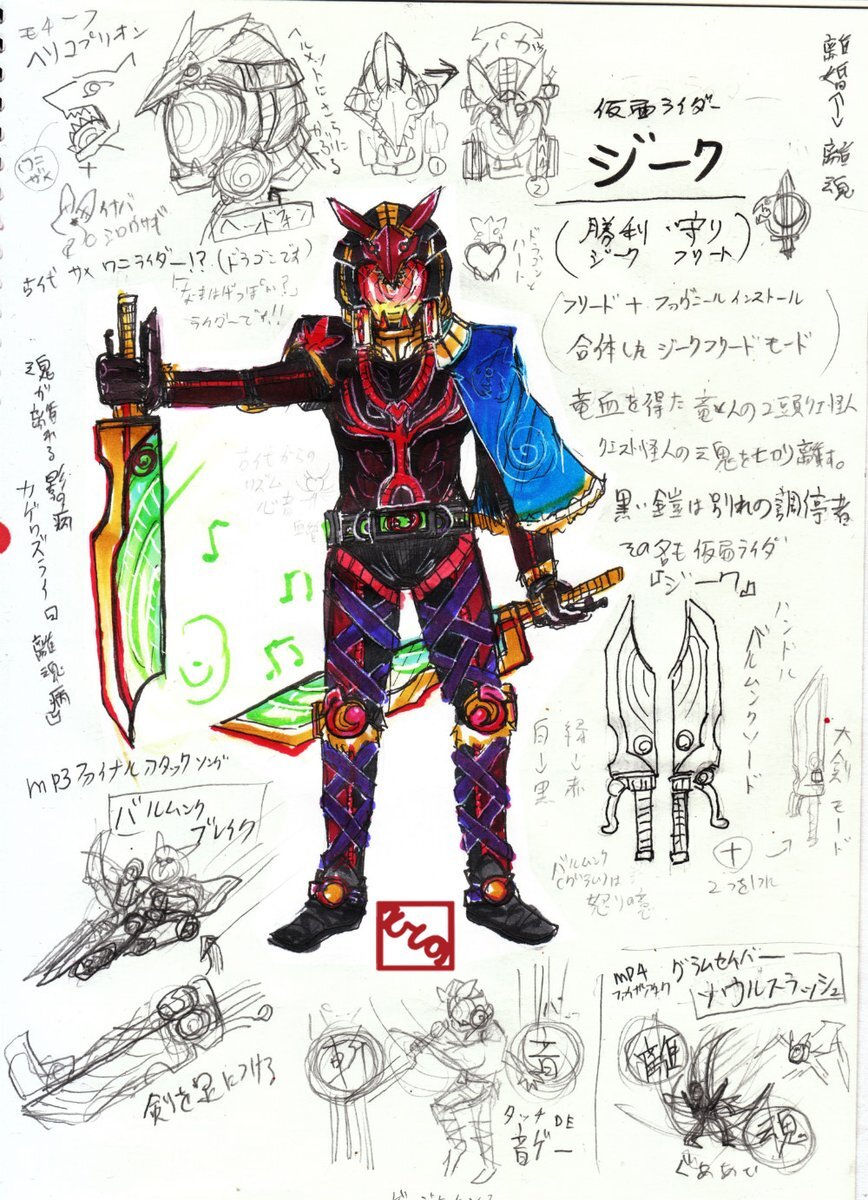 モチーフ
ヘリコプリオン
ワニ
サメ
+
イナバ
シロウサギ
ヘルメットにさらに
かぶる
ヘッドフォン
①
パカッ
②
離婚
離魂
仮面ライダー
ジーク
(勝利 守り)
ジーク フリート
ドラゴンと
ハート
古代 サメ ワニライダー!?(ドラゴンです)
ライダーです!!
(フリード + ファヴニールインストール
合体した ジークフリードモード)
竜血を得た 竜と人の2頭クエ怪人
クエスト怪人の魂を切り離す。
黒い鎧は別れの調停者
その名も 仮面ライダー
『ジーク』
古代からの
リズム
心音
魂が離れる 影の病
カゲワズライ 離魂病
ハンドル
バルムンクソード
大剣モード
+
2つを1つに
緑→赤
白→黒
バルムンク
(グラム)は
怒りの竜
mp3 ファイナルアタックソング
バルムンク
ブレイク
剣を足につける
斬
音
タッチDE
音ゲー
mp4 グラムセイバー
ソウルスラッシュ
離
魂